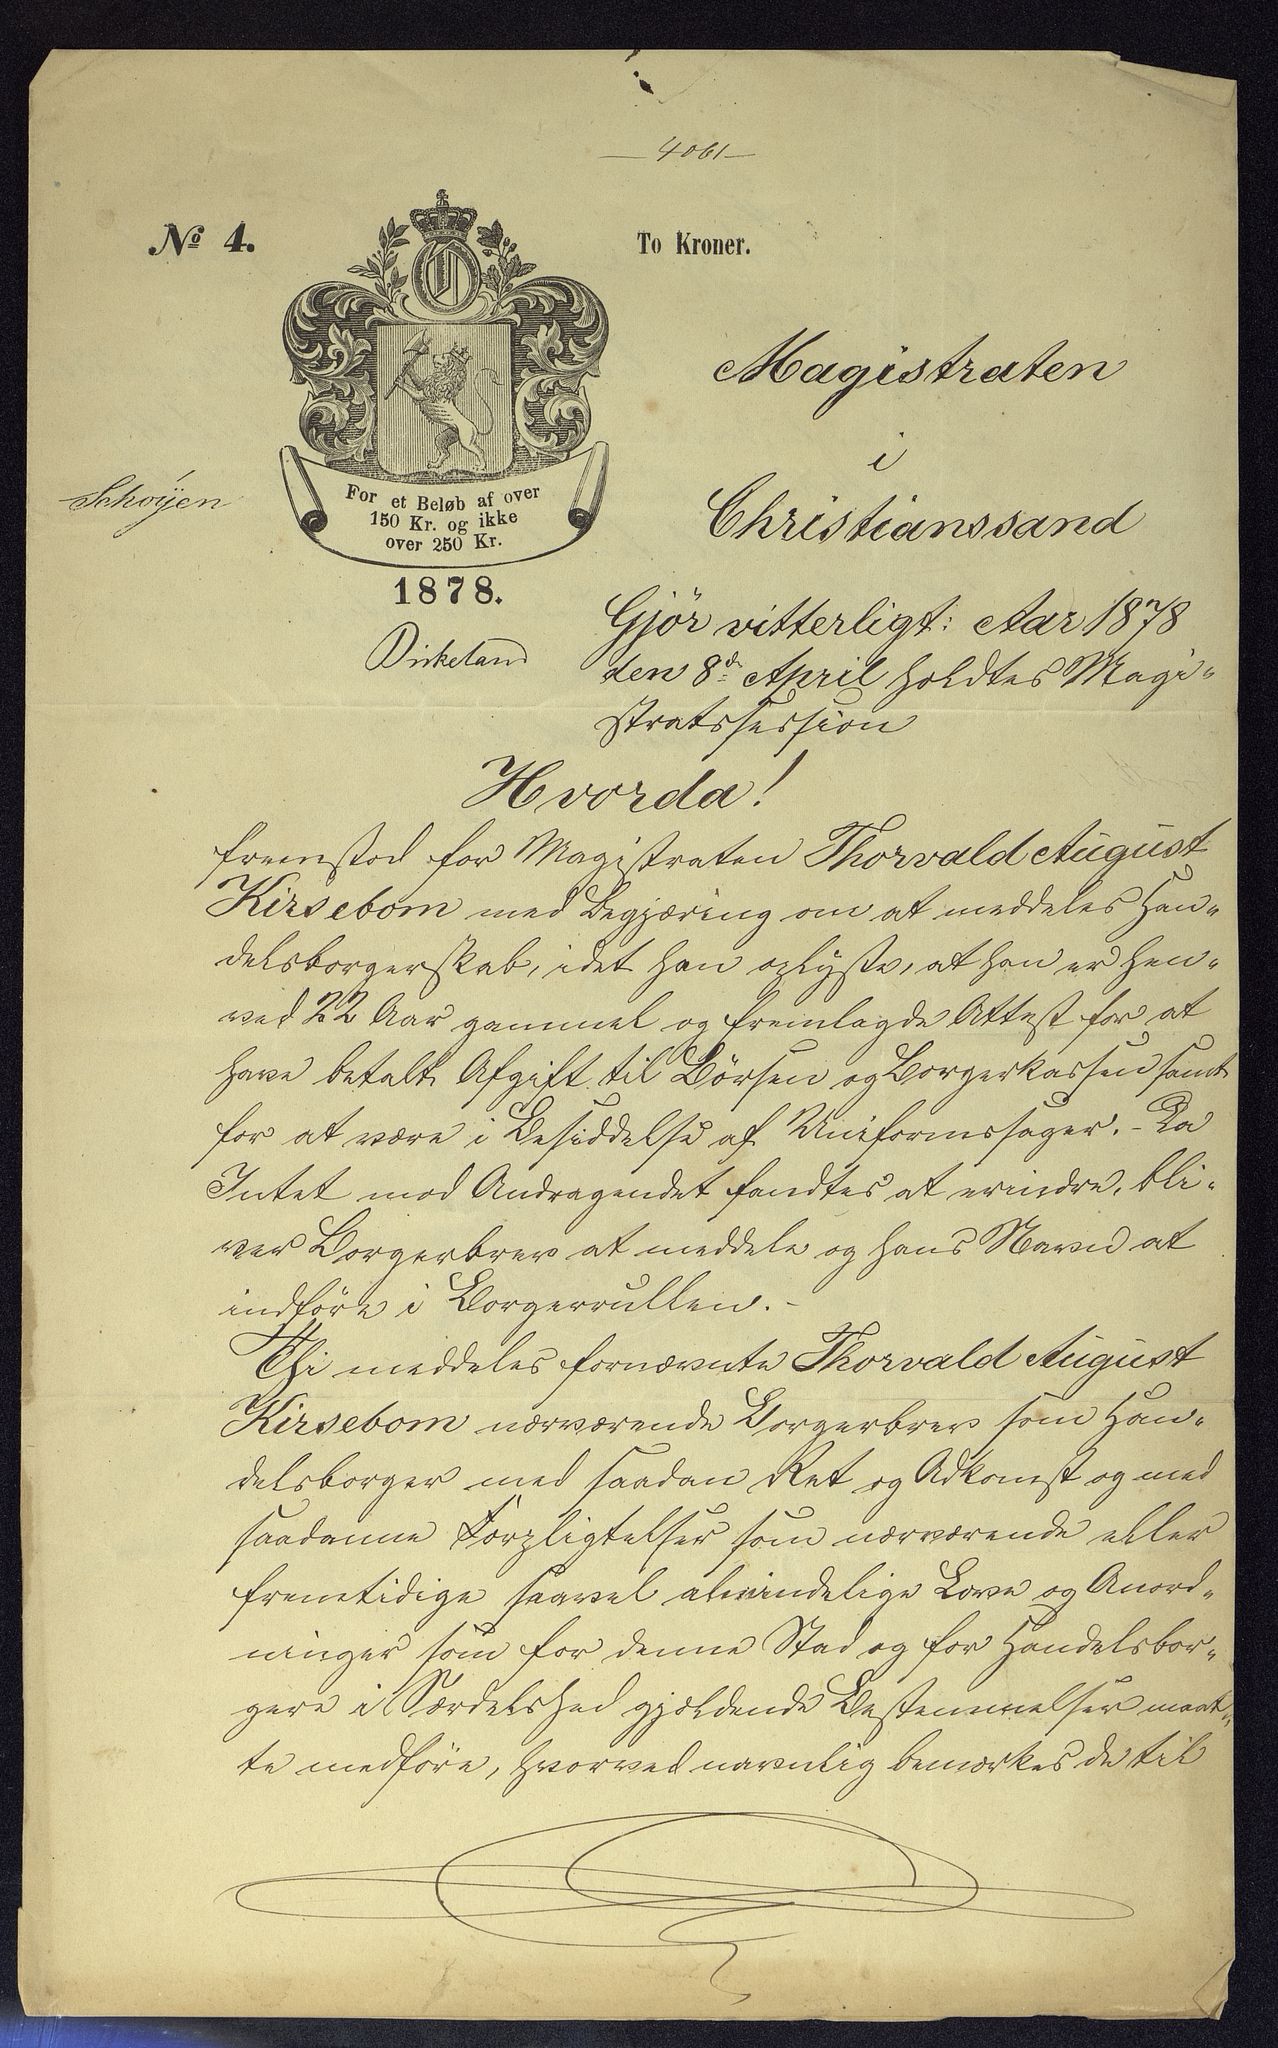 — 4061 —
No 4.
To Kroner.
Magistraten
i
Christianssand
Schøyen
For et Beløb af over
150 Kr. og ikke
over 250 Kr.
1878.
Birkeland
Gjör vitterligt: Aar 1878
den 8de April holdtes Magi-
stratssession
Hvorda!
fremstod for Magistraten Thorvald August
Kirsebom med Begjæring om at meddeles Han-
delsborgerskab, idet han oplyste, at han er hen-
ved 22 Aar gammel og fremlagde Attest for at
have betalt Afgift til Börsen og Borgerkassen samt
for at være i Besiddelse af Uniformssager. - Da
Intet mod Andragendet fandtes at erindre, bli-
ver Borgerbrev at meddele og hans Navn at
indföre i Borgerrullen. -
Thi meddeles fornævnte Thorvald August
Kirsebom nærværende Borgerbrev som Han-
delsborger med saadan Ret og Adkomst og med
saadanne Forpligtelser som nærværende eller
fremtidige saavel almindelige Love og Anord-
ninger som for denne Stad og for Handelsbor-
gere i Særdeleshed gjældende Bestemmelser maat-
te medföre, hvorved navnlig bemærkes de til